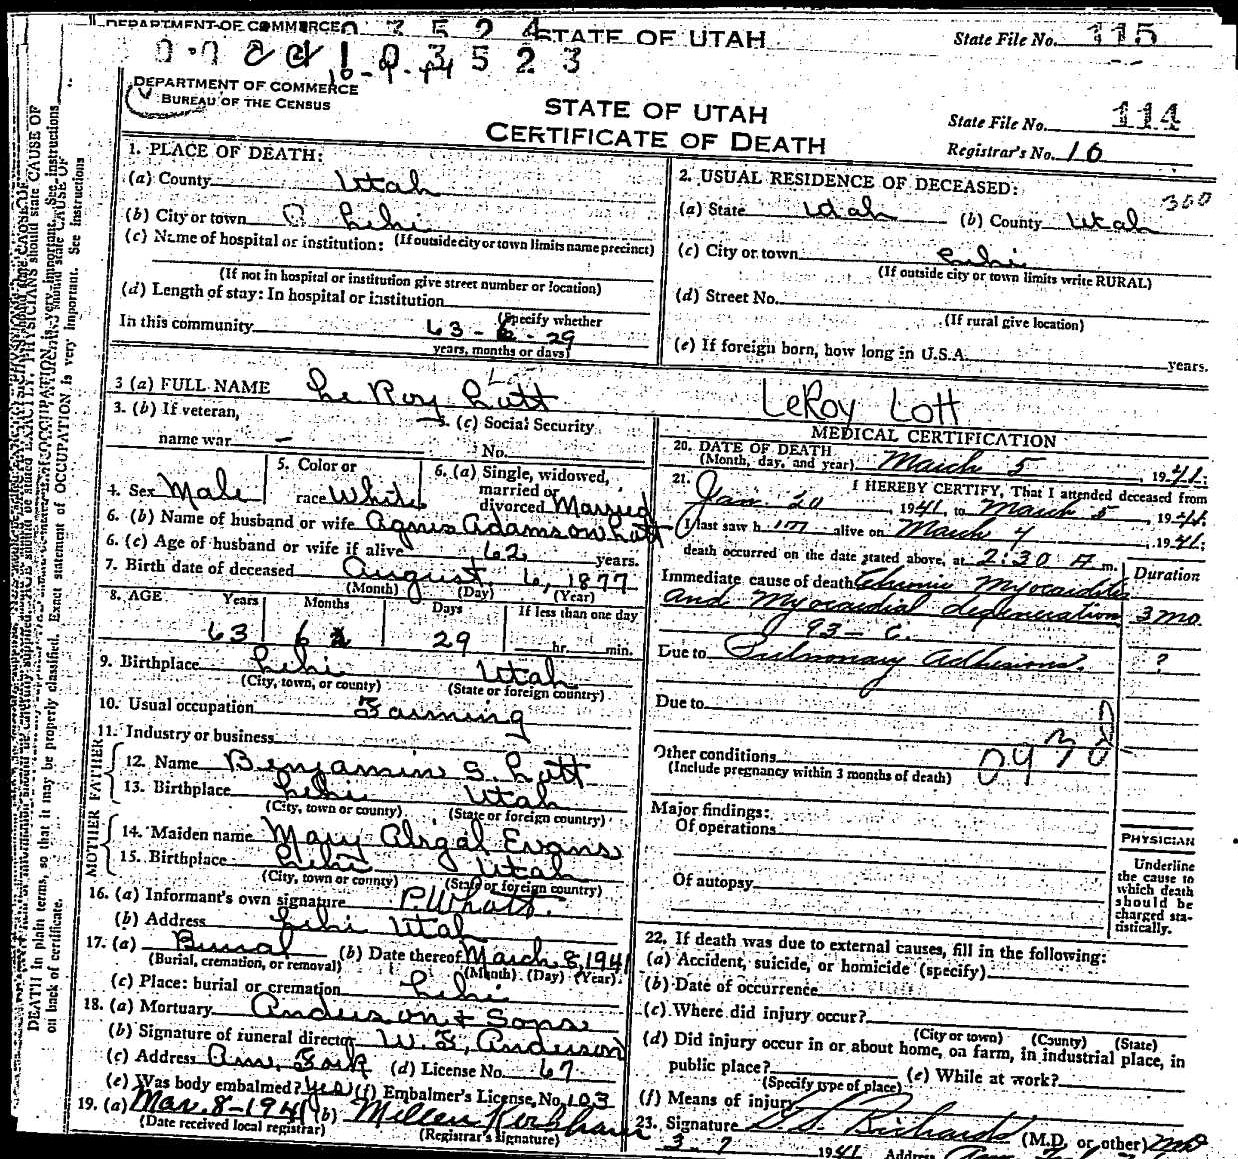 DEPARTMENT OF COMMERCE 0 3 5 2 4 STATE OF UTAH State File No. 115
0 3 5 2 3
10-9-44
DEPARTMENT OF COMMERCE
BUREAU OF THE CENSUS
STATE OF UTAH
CERTIFICATE OF DEATH
State File No. 114
Registrar's No. 10
1. PLACE OF DEATH:
(a) County Utah
(b) City or town Lehi
(c) Name of hospital or institution: (If outside city or town limits name precinct)
(If not in hospital or institution give street number or location)
(d) Length of stay: In hospital or institution
(Specify whether
In this community 63 - 6 - 29
years, months or days)
2. USUAL RESIDENCE OF DECEASED:
300
(a) State Utah (b) County Utah
(c) City or town Lehi
(If outside city or town limits write RURAL)
(d) Street No.
(If rural give location)
(e) If foreign born, how long in U.S.A. years.
3 (a) FULL NAME Le Roy Lott LeRoy Lott
3. (b) If veteran,
name war -
3. (c) Social Security
No.
4. Sex Male
5. Color or
race White
6. (a) Single, widowed,
married or
divorced Married
6. (b) Name of husband or wife Agnes Adamson Lott
6. (c) Age of husband or wife if alive 62 years.
7. Birth date of deceased August 6, 1877
(Month) (Day) (Year)
8. AGE Years Months Days If less than one day
63 6 29 hr. min.
9. Birthplace Lehi Utah
(City, town, or county) (State or foreign country)
10. Usual occupation Farming
11. Industry or business
FATHER
12. Name Benjamin S. Lott
13. Birthplace Lehi Utah
(City, town or county) (State or foreign country)
MOTHER
14. Maiden name Mary Abigal Evans
15. Birthplace Lehi Utah
(City, town or county) (State or foreign country)
16. (a) Informant's own signature
(b) Address Lehi Utah
17. (a) Burial (b) Date thereof March 8, 1941
(Burial, cremation, or removal) (Month) (Day) (Year)
(c) Place: burial or cremation Lehi
18. (a) Mortuary Anderson & Sons
(b) Signature of funeral director W. F. Anderson
(c) Address Am. Fork (d) License No. 67
(e) Was body embalmed? yes (f) Embalmer's License, No. 103
19. (a) Mar. 8-1941 (b)
(Date received local registrar) (Registrar's signature)
MEDICAL CERTIFICATION
20. DATE OF DEATH
(Month, day, and year) March 5, 1941.
21. I HEREBY CERTIFY, That I attended deceased from
Jan 30, 1941, to March 5, 1941.
I last saw him alive on March 4, 1941;
death occurred on the date stated above, at 2:30 A m.
Duration
Immediate cause of death Chronic Myocarditis
and Myocardial degeneration 3 mo.
93 - c.
Due to Pulmonary Adhesions. ?
Due to
Other conditions
(Include pregnancy within 3 months of death)
Major findings:
Of operations
Of autopsy
PHYSICIAN
Underline
the cause to
which death
should be
charged sta-
tistically.
22. If death was due to external causes, fill in the following:
(a) Accident, suicide, or homicide (specify)
(b) Date of occurrence
(c) Where did injury occur?
(City or town) (County) (State)
(d) Did injury occur in or about home, on farm, in industrial place, in
public place? (e) While at work?
(Specify type of place)
(f) Means of injury
23. Signature Richards (M.D. or other) MD
3-7 1941 Address
DEATH in plain terms, so that it may be properly classified. Exact statement of OCCUPATION is very important. See instructions
on back of certificate.